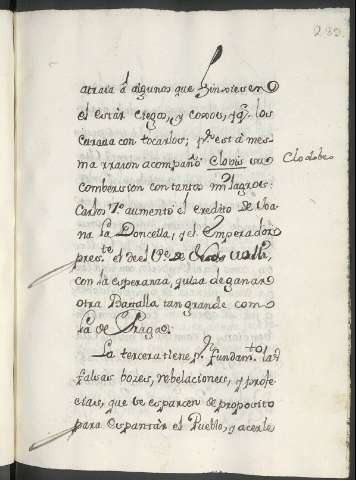 289.
atraia á algunos que finxiesen
el estár ciegos, y coxos, y q.e los
curava con tocarlos; p.r esta mes-
ma razon acompañó Clovis su
Clodobeo
combersion con tantos milagros:
Carlos 7.o aumentó el credito de Jua-
na la Doncella, y el Emperador
pres.te el de el P.e de
con la esperanza, quiza de ganar
otra Batalla tan grande com
la de Praga.
La tercera tiene p.r fundam.to las
falsas bozes, rebelaciones, y profe-
cias, que se esparcen de proposito
para espantár el Pueblo, y acerle